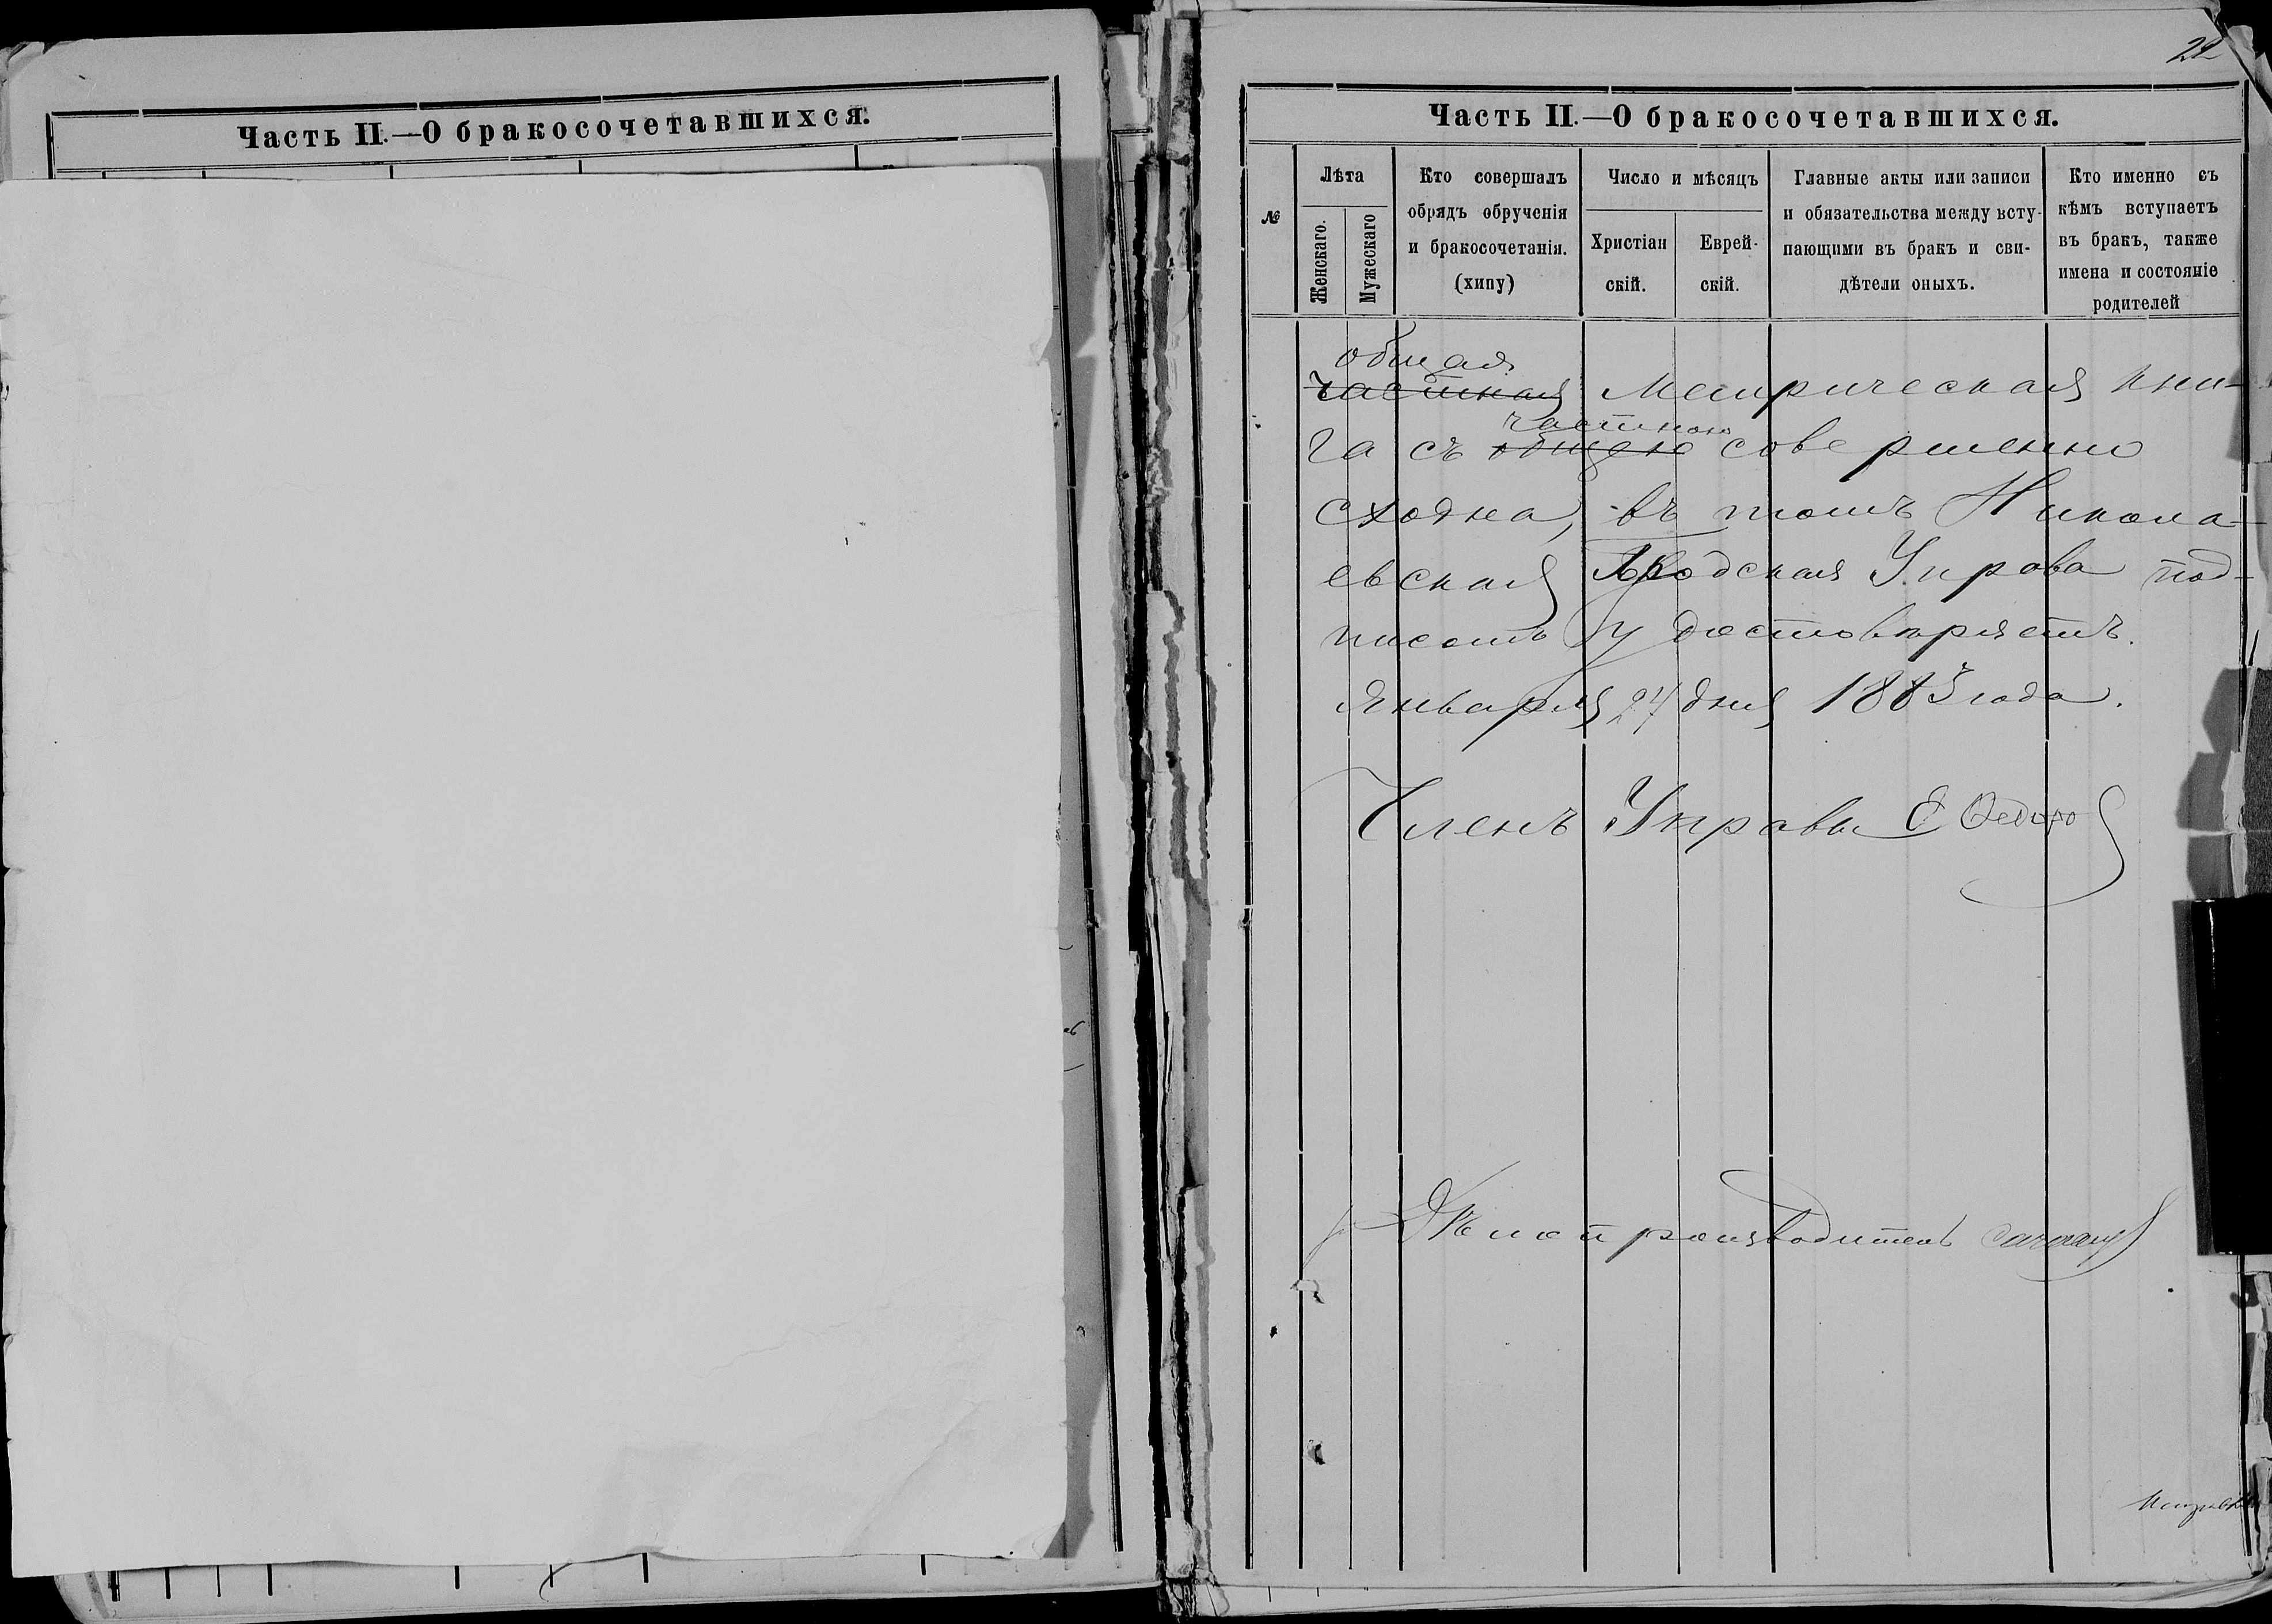 Часть II.—О бракосочетавшихся.
22
Часть II.—О бракосочетавшихся.
№
Лѣта
Женскаго.
Мужескаго
Кто совершалъ
обрядъ обрученія
и бракосочетанія.
(хипу)
Число и мѣсяцъ
Христіан
скій.
Еврей-
скій.
Главные акты или записи
и обязательства между всту-
пающими въ бракъ и сви-
дѣтели оныхъ.
Кто именно съ
кѣмъ вступаетъ
въ бракъ, также
имена и состояніе
родителей
общая
частная Метрическая кни-
частною
га съ общею совершенно
сходна, въ томъ Никола-
евская Городская Управа под-
писомъ удостовѣряетъ.
Января 24 дня 1883 года.
Членъ Управы Е Ѳедоро
Дѣлопроизводитель